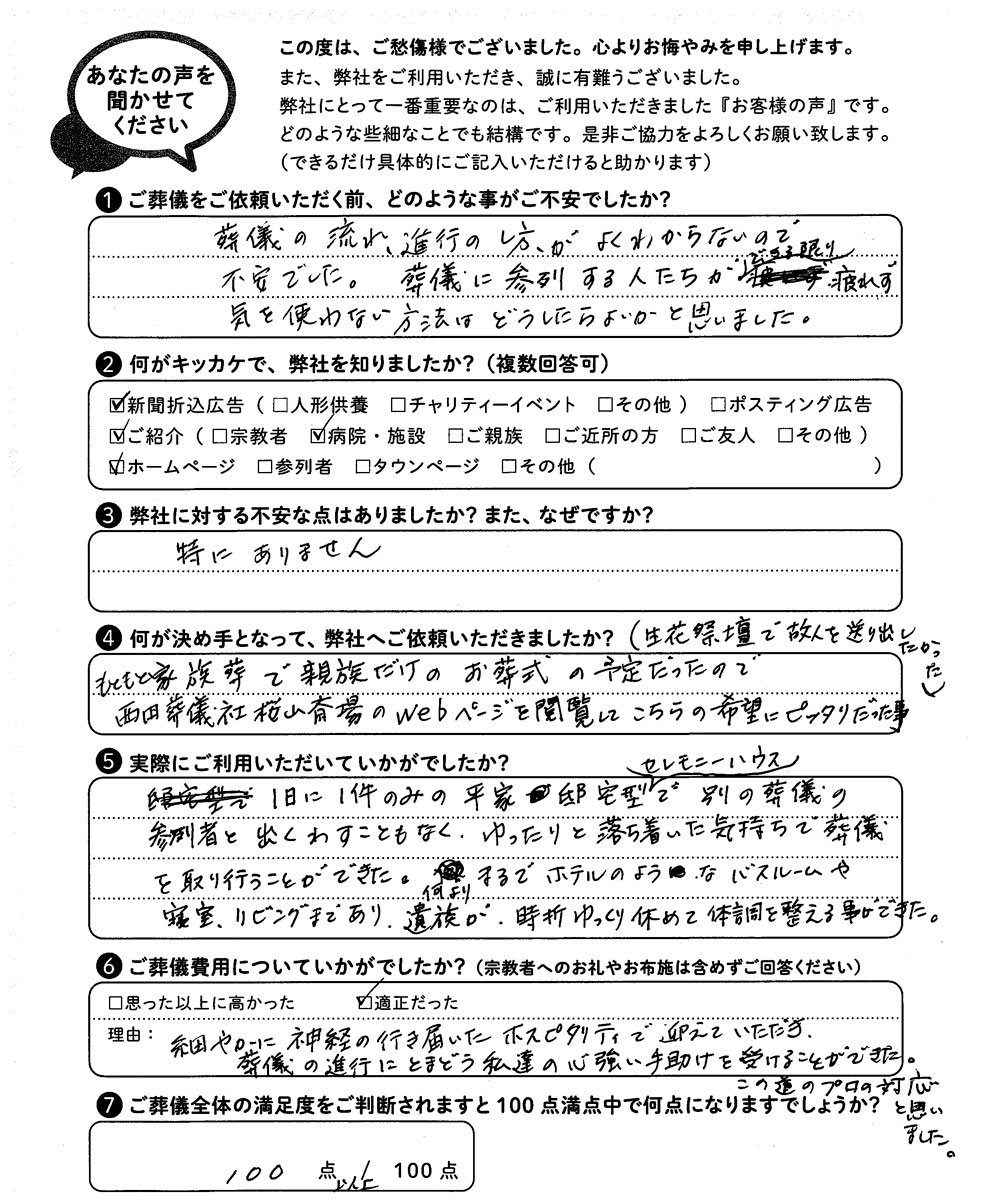 あなたの声を
聞かせて
ください
この度は、ご愁傷様でございました。心よりお悔やみを申し上げます。
また、弊社をご利用いただき、誠に有難うございました。
弊社にとって一番重要なのは、ご利用いただきました『お客様の声』です。
どのような些細なことでも結構です。是非ご協力をよろしくお願い致します。
（できるだけ具体的にご記入いただけると助かります）
❶ ご葬儀をご依頼いただく前、どのような事がご不安でしたか？
葬儀の流れ、進行のし方、がよくわからないので
不安でした。葬儀に参列する人たちができる限り疲れず
気を使わない方法はどうしたらよいかと思いました。
❷ 何がキッカケで、弊社を知りましたか？（複数回答可）
☑新聞折込広告（□人形供養 □チャリティーイベント □その他） □ポスティング広告
☑ご紹介（□宗教者 ☑病院・施設 □ご親族 □ご近所の方 □ご友人 □その他）
☑ホームページ □参列者 □タウンページ □その他（ ）
❸ 弊社に対する不安な点はありましたか？また、なぜですか？
特にありません
❹ 何が決め手となって、弊社へご依頼いただきましたか？
（生花祭壇で故人を送り出したかった）
もともと家族葬で親族だけのお葬式の予定だったので
西田葬儀社桜山斎場のWebページを閲覧してこちらの希望にピッタリだった事
❺ 実際にご利用いただいていかがでしたか？
セレモニーハウス
1日に1件のみの平家邸宅型で別の葬儀の
参列者と出くわすこともなく、ゆったりと落ち着いた気持ちで葬儀
を取り行うことができた。何よりまるでホテルのようなバスルームや
寝室、リビングまであり、遺族が、時折ゆっくり休めて体調を整える事ができた。
❻ ご葬儀費用についていかがでしたか？（宗教者へのお礼やお布施は含めずご回答ください）
□思った以上に高かった ☑適正だった
理由：細やかに神経の行き届いたホスピタリティで迎えていただき、
葬儀の進行にとまどう私達の心強い手助けを受けることができた。
この道のプロの対応
と思い
ました。
❼ ご葬儀全体の満足度をご判断されますと100点満点中で何点になりますでしょうか？
100点以上/100点